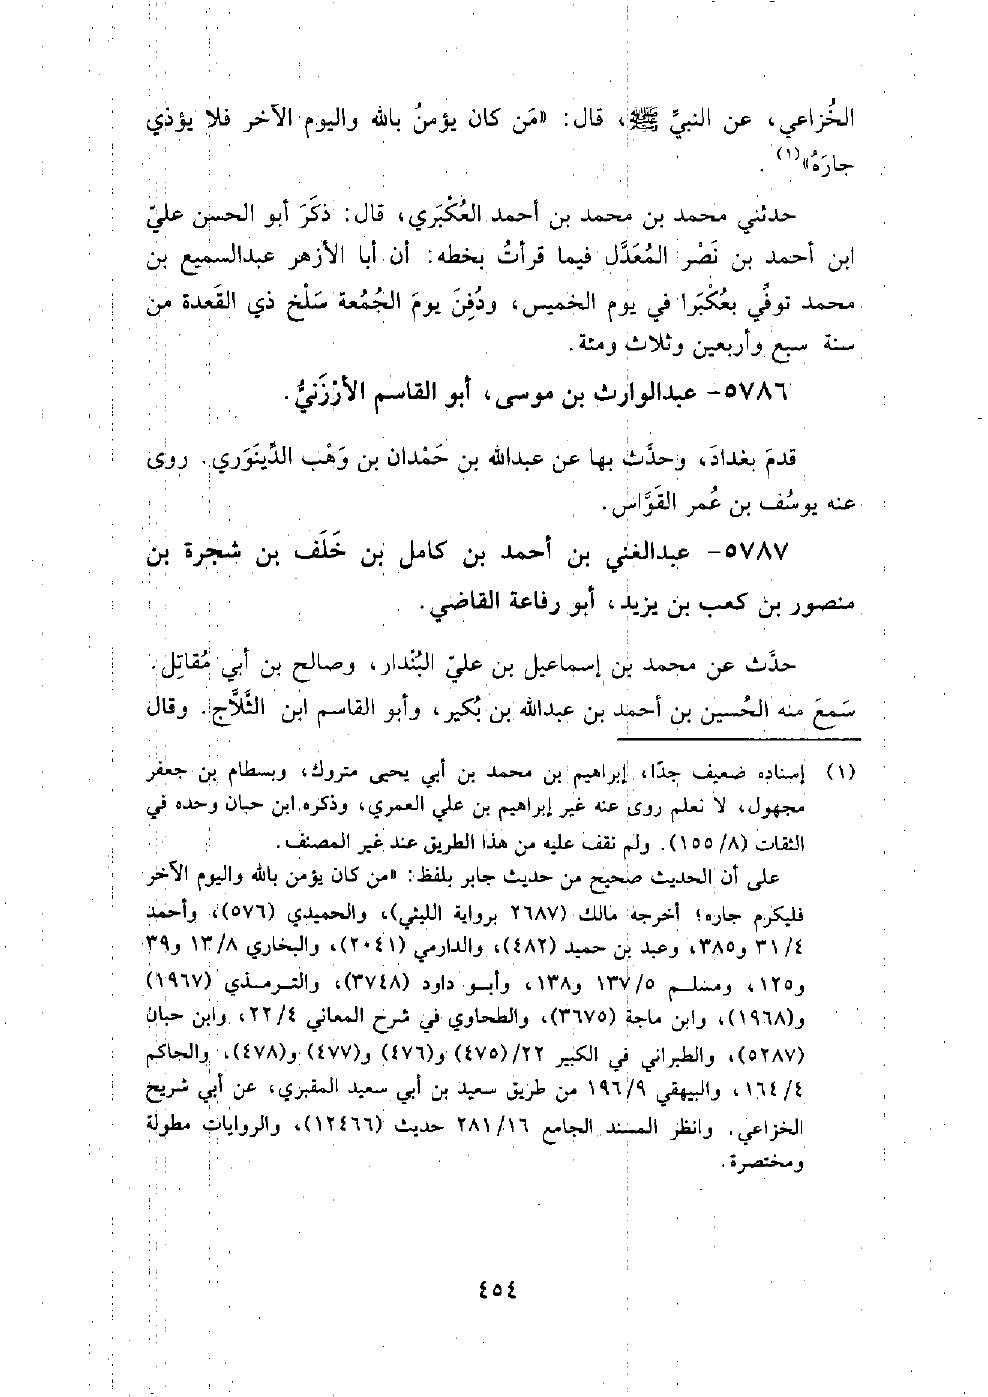 الخُزاعي، عن النبيِّ ﷺ، قال: «مَن كان يؤمنُ بالله واليوم الآخر فلا يؤذي
جارَهُ»(١).
حدثني محمد بن محمد بن أحمد العُكْبَري، قال: ذكَرَ أبو الحسن عليّ
ابن أحمد بن نَصْر المُعَدَّل فيما قرأتُ بخطه: أن أبا الأزهر عبدالسميع بن
محمد توفِّي بعُكْبَرا في يوم الخميس، ودُفِنَ يومَ الجُمُعة سَلْخ ذي القَعدة من
سنة سبع وأربعين وثلاث ومئة.
٥٧٨٦- عبدالوارث بن موسى، أبو القاسم الأرْزَنيُّ.
قدمَ بغدادَ، وحدَّث بها عن عبدالله بن حَمْدان بن وَهْب الدِّينَوَري. روى
عنه يوسُف بن عُمر القَوَّاس.
٥٧٨٧- عبدالغني بن أحمد بن كامل بن خَلَف بن شجرة بن
منصور بن كعب بن يزيد، أبو رفاعة القاضي.
حدَّث عن محمد بن إسماعيل بن عليّ البُندار، وصالح بن أبي مُقاتِل.
سَمِعَ منه الحُسين بن أحمد بن عبدالله بن بُكير، وأبو القاسم ابن الثَّلاَّج. وقال
(١) إسناده ضعيف جدًا، إبراهيم بن محمد بن أبي يحيى متروك، وبسطام بن جعفر
مجهول، لا نعلم روى عنه غير إبراهيم بن علي العمري، وذكره ابن حبان وحده في
الثقات (٨/ ١٥٥). ولم نقف عليه من هذا الطريق عند غير المصنف.
على أن الحديث صحيح من حديث جابر بلفظ: «من كان يؤمن بالله واليوم الآخر
فليكرم جاره؛ أخرجه مالك (٢٦٨٧ برواية الليثي)، والحميدي (٥٧٦)، وأحمد
٤/ ٣١ و٣٨٥، وعبد بن حميد (٤٨٢)، والدارمي (٢٠٤١)، والبخاري ٨/ ١٣ و٣٩
و١٢٥، ومسلم ٥/ ١٣٧ و١٣٨، وأبو داود (٣٧٤٨)، والترمذي (١٩٦٧)
و(١٩٦٨)، وابن ماجة (٣٦٧٥)، والطحاوي في شرح المعاني ٤/ ٢٢، وابن حبان
(٥٢٨٧)، والطبراني في الكبير ٢٢/ (٤٧٥) و(٤٧٦) و(٤٧٧) و(٤٧٨)، والحاكم
٤/ ١٦٤، والبيهقي ٩/ ١٩٦ من طريق سعيد بن أبي سعيد المقبري، عن أبي شريح
الخزاعي. وانظر المسند الجامع ١٦/ ٢٨١ حديث (١٢٤٦٦)، والروايات مطولة
ومختصرة.
٤٥٤